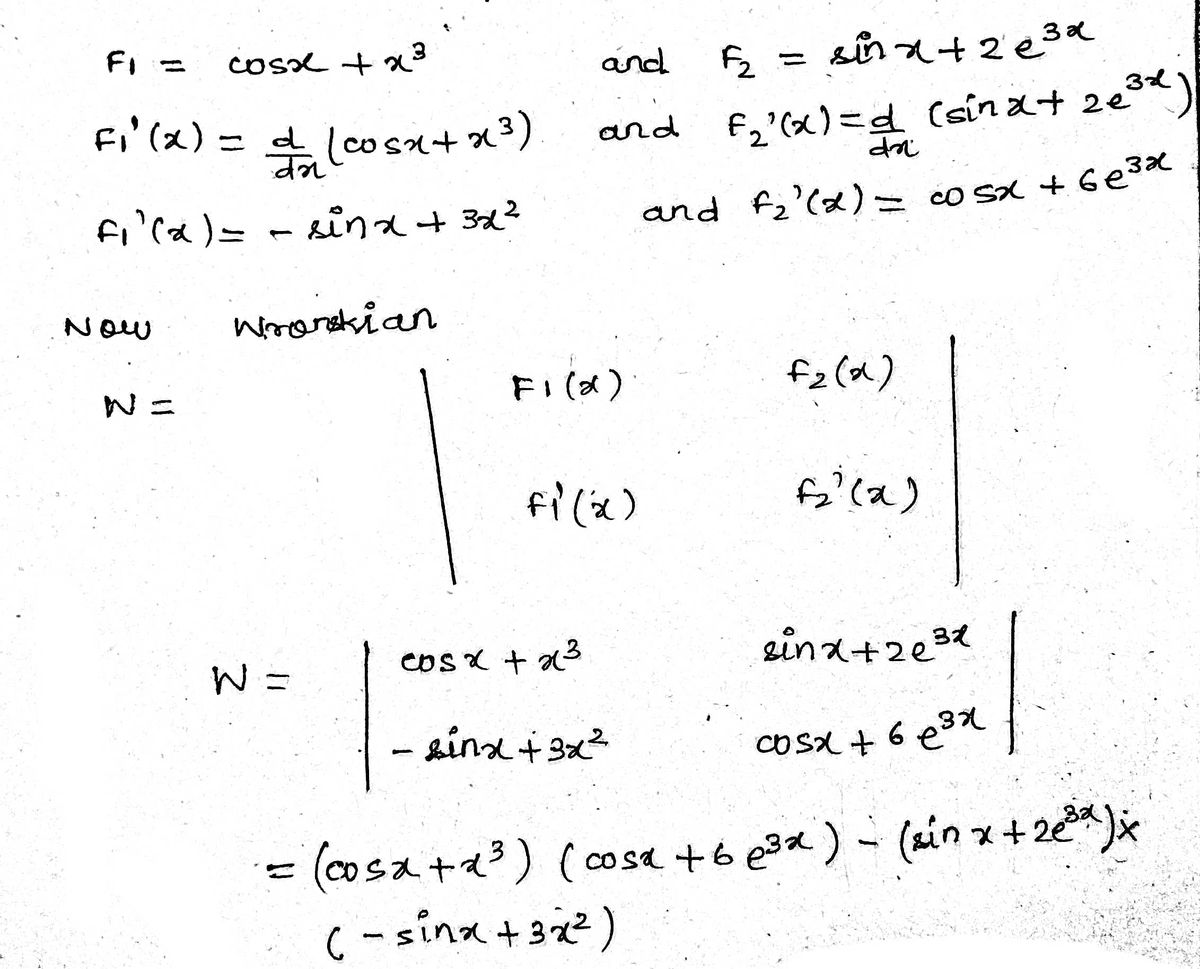 F1 = cosx + x³ and F₂ = sin x + 2e³ˣ
F1'(x) = d/dx (cosx + x³) and F₂'(x) = d/dx (sin x + 2e³ˣ)
F1'(x) = - sin x + 3x² and F₂'(x) = cosx + 6e³ˣ
Now Wronskian
W = | F1(x) F₂(x) |
| F1'(x) F₂'(x) |
W = | cosx + x³ sinx + 2e³ˣ |
| - sinx + 3x² cosx + 6e³ˣ |
= (cosx + x³) (cosx + 6e³ˣ) - (sin x + 2e³ˣ) x
(- sinx + 3x²)